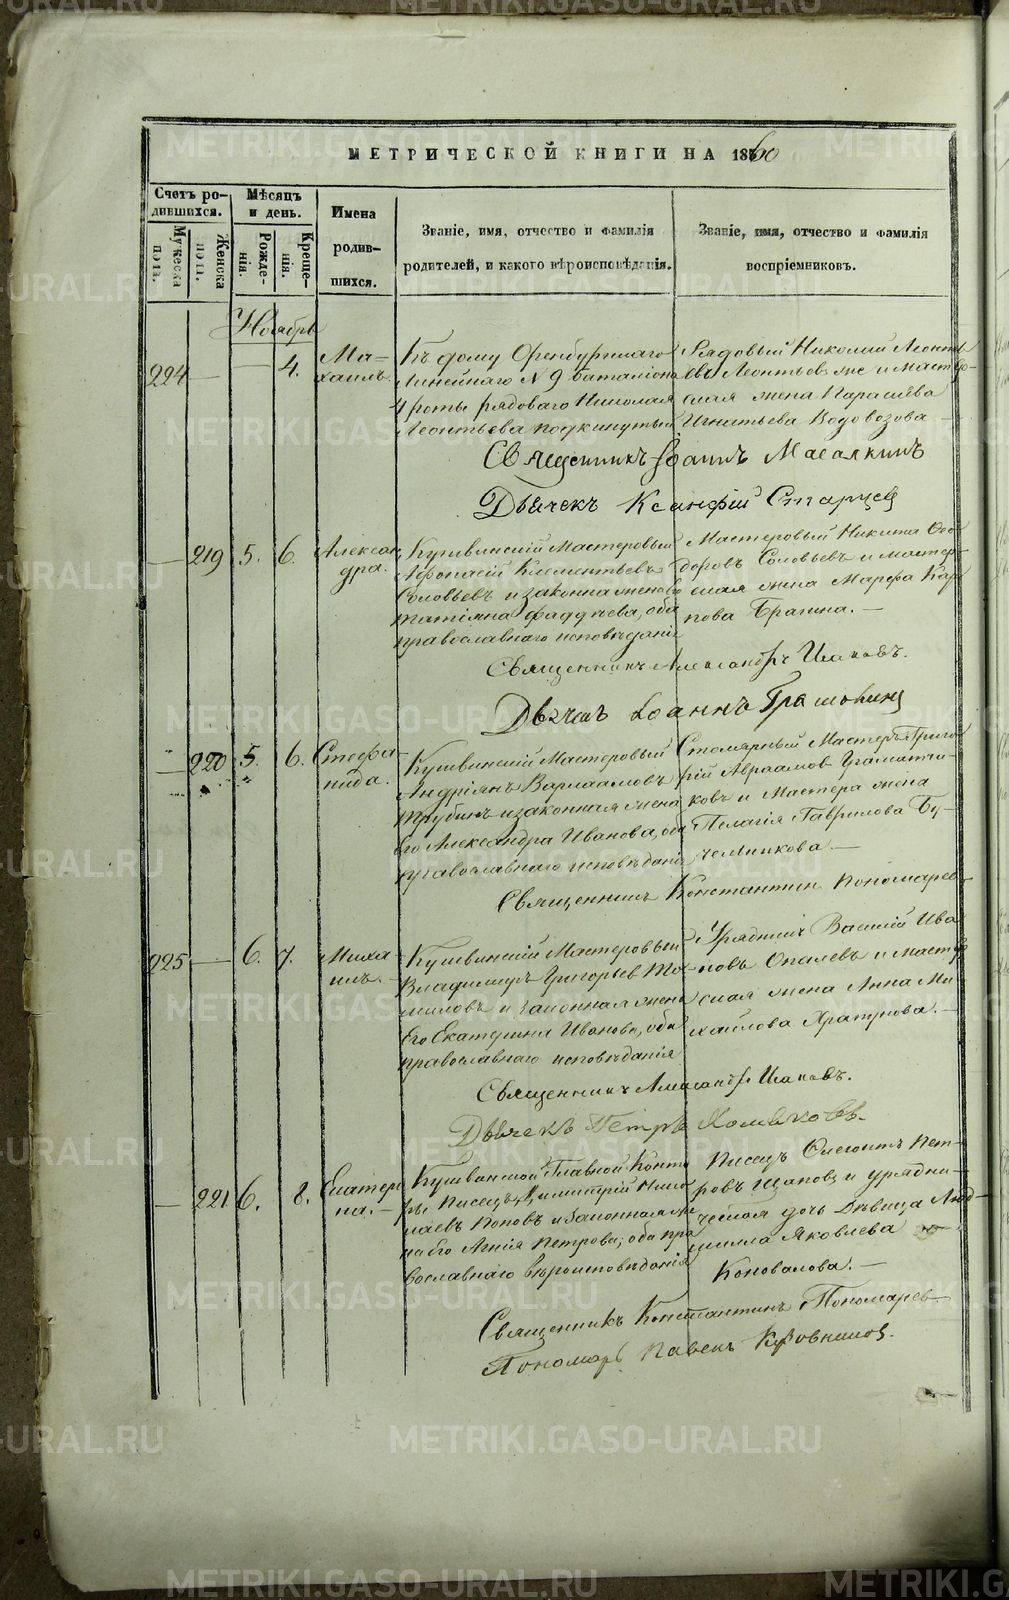 МЕТРИЧЕСКОЙ КНИГИ НА 1860
Счетъ ро-
дившихся.
Мужеска
пола.
Женска
пола.
Мѣсяцъ
и день.
Рожде-
нія.
Креще-
нія.
Имена
родив-
шихся.
Званіе, имя, отчество и фамилія
родителей, и какого вѣроисповѣданія.
Званіе, имя, отчество и фамилія
воспріемниковъ.
Ноябрь
224 — — 4. Ми-
хаилъ.
Къ дому Оренбургскаго
Линейнаго N 9 баталіона
4 роты рядоваго Николая
Леонтьева подкинутый
Рядовый Николай Леонть-
евъ Леонтьевъ же и Масте-
ская жена Параскева
Игнатьева Водовозова
Священникъ Іоаннъ Масалкинъ
Дьячекъ Ксанфій Старцев
— 219 5. 6. Алексан-
дра.
Кушвинскій Мастеровый
Афонасій Клементьевъ
Соловьевъ и законная жена
Татіяна Фаддѣева, оба
православнаго исповѣданія
Мастеровый Никита Ѳео-
доровъ Соловьевъ и мастер-
ская жена Марфа Кар-
пова Брагина. —
Священникъ Александръ Исаковъ.
Дьячекъ Іоаннъ
— 220 5. 6. Стефа-
нида.
Кушвинскій Мастеровый
Андріянъ Варлаамовъ
Трубинъ и законная жена
Его Александра Иванова, оба
православнаго исповѣданія
Столярный Мастеръ Григо-
рій Авраамовъ Грамотчи-
ковъ и Мастера жена
Пелагія Гаврилова Бу-
чельникова —
Священникъ Константинъ Пономарев
225 — 6. 7. Миха-
илъ. —
Кушвинскій Мастеровый
Владимиръ Григорьев То-
миловъ и Законная жена
Его Екатерина Иванова, оба
православнаго исповѣданія
Урядникъ Василій Ива-
новъ Опалевъ и мастер-
ская жена Анна Ми-
хайлова Храпунова. —
Священникъ Александръ Исаковъ.
Дьячекъ Петръ Хомяковъ.
— 221 6. 8. Екатери-
на. —
Кушвинской Главной Конто-
ры Писецъ Димитрій Нико-
лаевъ Поповъ и Законная Же-
на Его Агнія Петрова, оба пра-
вославнаго вѣроисповѣданія
Писецъ Олегонтъ Пет-
ровъ Щапов и урядни-
ческая дочь Дѣвица Люд-
милла Яковлева
Коновалова. —
Священникъ Константинъ Пономарев
Пономарь Павелъ Кровниковъ.
METRIKI.GASO-URAL.RU